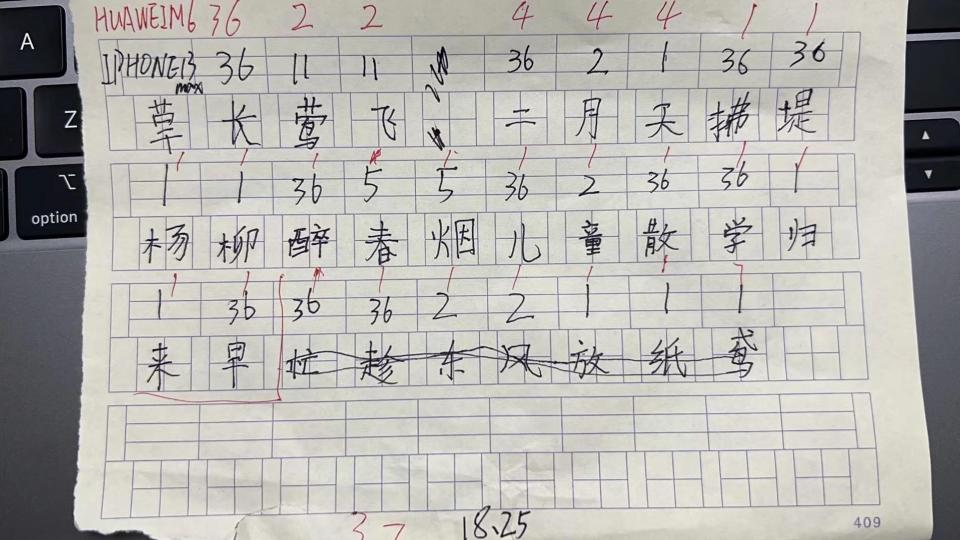 HUAWEIM6 36 2 2 4 4 4 1 1
IPHONE13 max 36 11 11 36 2 1 36 36
草 长 莺 飞 二 月 天 拂 堤
1 1 36 5 5 36 2 36 36 1
杨 柳 醉 春 烟 儿 童 散 学 归
1 36 36 36 2 2 1 1 1
来 早 忙 趁 东 风 放 纸 鸢
37 18.25
409
A
Z
option